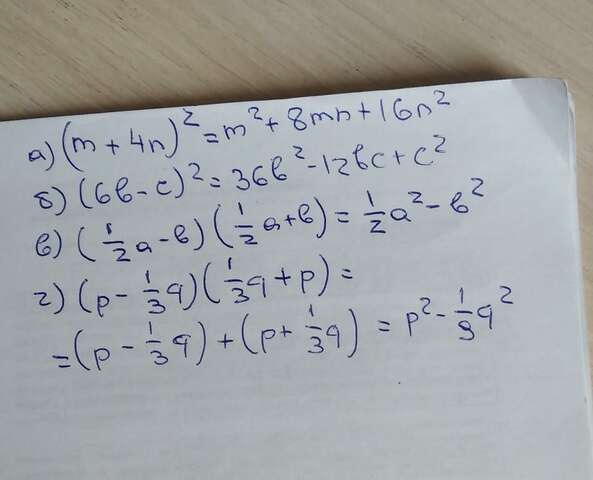 а) (m + 4n)² = m² + 8mn + 16n²
б) (6b - c)² = 36b² - 12bc + c²
в) (1/2 a - b) (1/2 a + b) = 1/2 a² - b²
г) (p - 1/3 q) (1/3 q + p) =
= (p - 1/3 q) + (p + 1/3 q) = p² - 1/9 q²